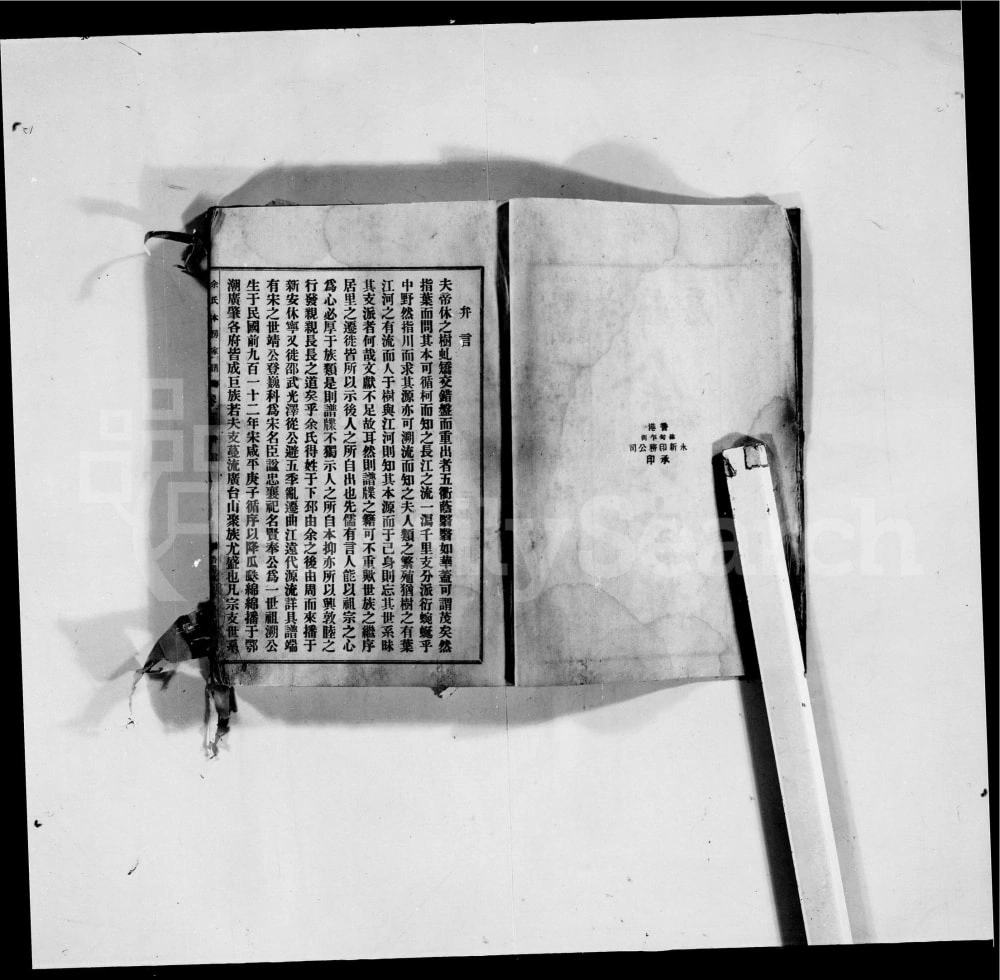 香港
永新印務公司
承印
弁言
夫帝休之樹虬矯交錯盤而重出者五衢蔭翳翳如華蓋可謂茂矣然
指葉而問其本可循柯而知之長江之流一瀉千里支分派衍蜿蜒乎
中野然指川而求其源亦可溯流而知之夫人類之繁殖猶樹之有葉
江河之有流而人于樹與江河則知其本源而于己身則忘其世系昧
其支派者何哉文獻不足故耳然則譜牒之籍可不重歟世族之繼序
居里之遷徙皆所以示後人之所自出也先儒有言人能以祖宗之心
爲心必厚于族類是則譜牒不獨示人之所自本抑亦所以興敦睦之
行發親親長長之道矣乎余氏得姓于下邳由余之後由周而來播于
新安休寧又徙邵武光澤從公避五季亂遷曲江遠代源流詳具譜端
有宋之世靖公登巍科爲宋名臣諡忠襄祀名賢奉公爲一世祖溯公
生于民國前九百一十二年宋咸平庚子循序以降瓜瓞綿綿播于鄂
潮廣肇各府皆成巨族若夫支蔓流廣台山聚族尤盛也凡宗支世系
余氏
CitySearch